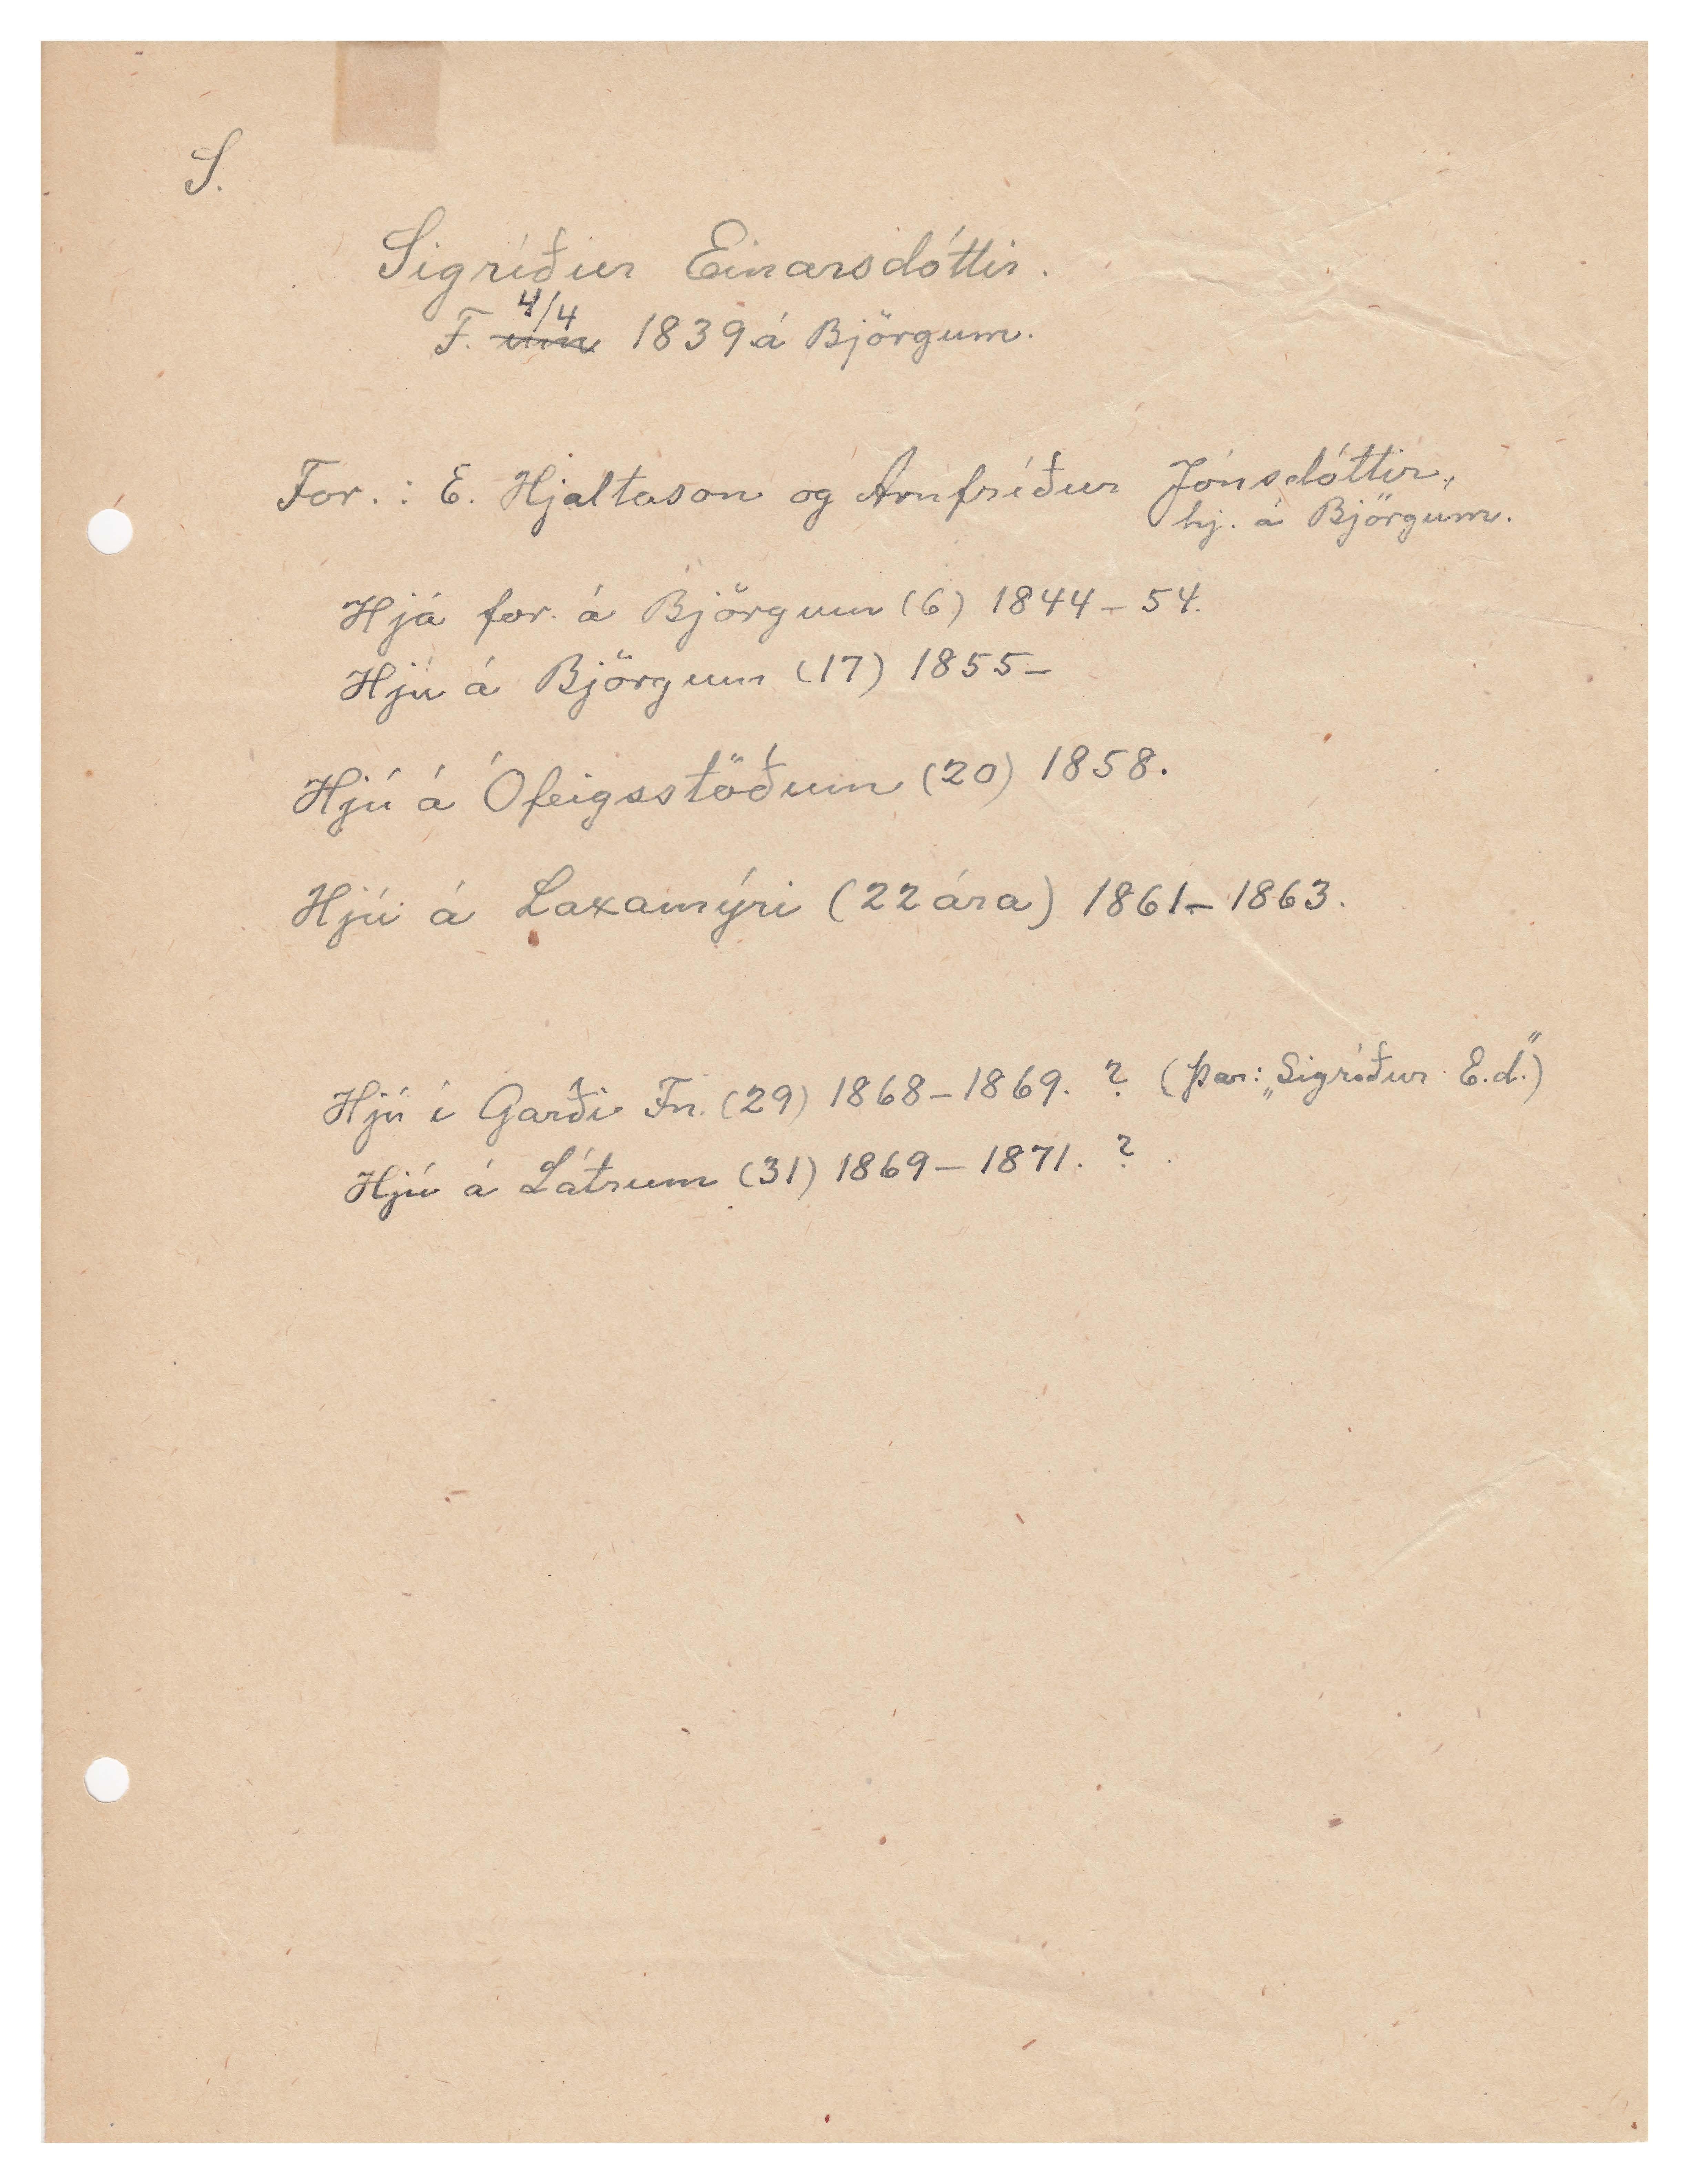 S.
Sigríður Einarsdóttir.
4/4
F. um 1839 á Björgum.
For.: E. Hjaltason og Arnfríður Jónsdóttir,
hj. á Björgum.
Hjá for. á Björgum (6) 1844-54.
Hjú á Björgum (17) 1855-
Hjú á Ófeigsstöðum (20) 1858.
Hjú á Laxamýri (22 ára) 1861-1863.
Hjú í Garði Fn. (29) 1868-1869. ? (þar: „Sigríður E.d.")
Hjú á Látrum (31) 1869-1871. ?